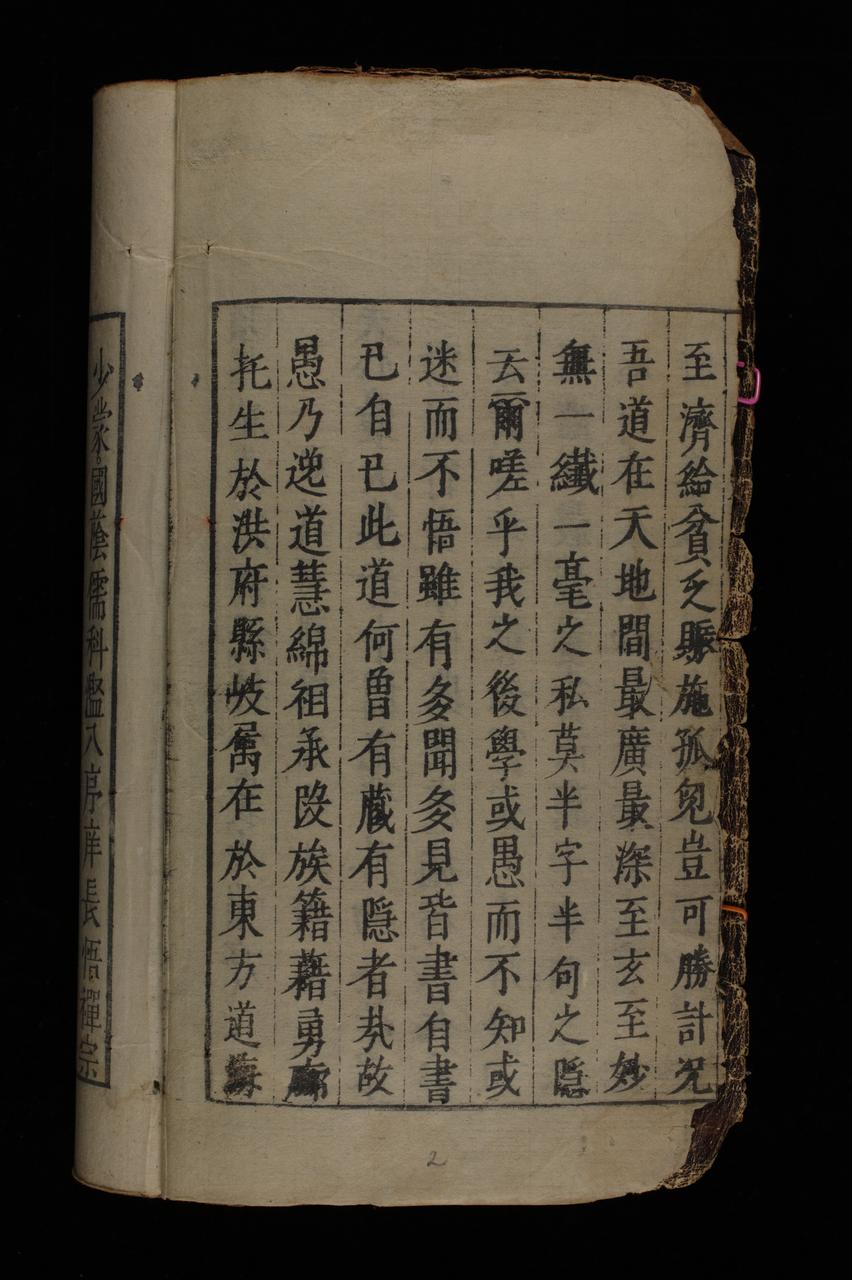 至濟給貧乏賑施孤皃豈可勝計况
吾道在天地間最廣最深至玄至妙
無一纎一毫之私莫半字半句之隱
云爾嗟乎我之後學或愚而不知或
迷而不悟雖有多聞多見皆書自書
已自已此道何曾有蔵有隱者㢤故
愚乃逆道慧綿祖承段族籍藉勇
托生於洪府縣岐寓在於東方道海
少蒙國蔭儒科濫入庠庠長悟禪宗
2